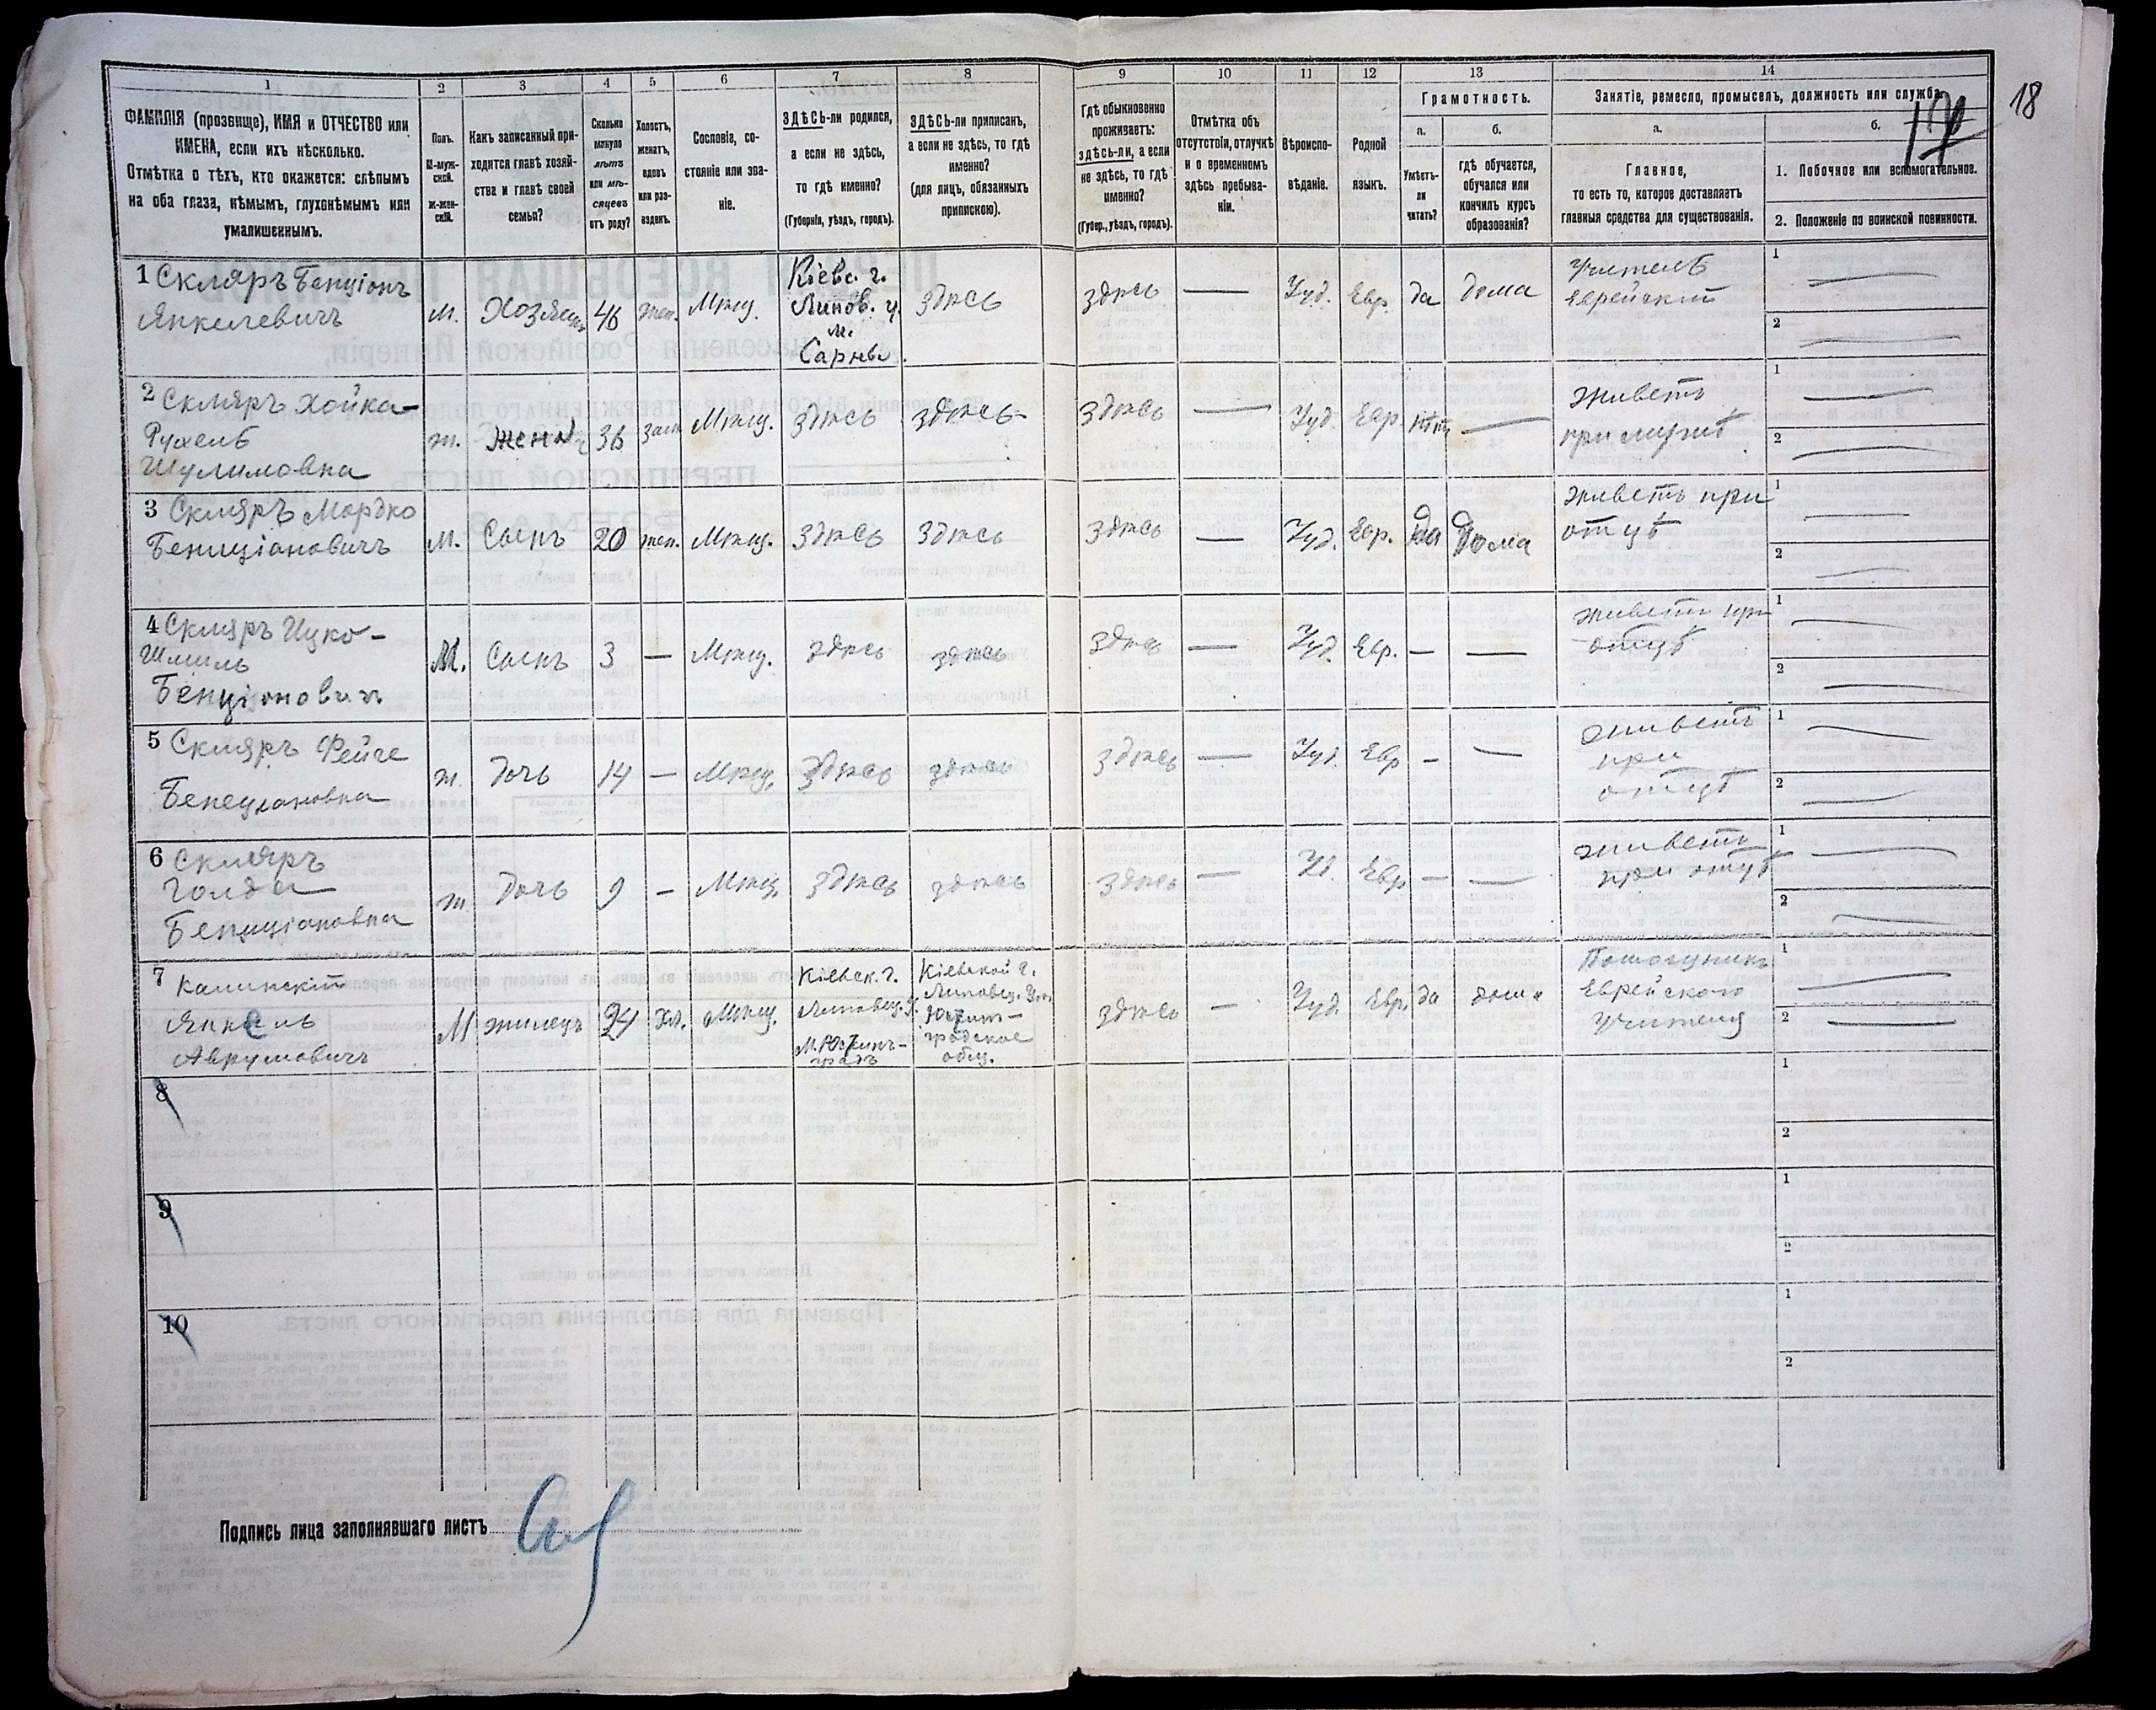 18
1 2 3 4 5 6 7 8 9 10 11 12 13 14
ФАМИЛІЯ (прозвище), ИМЯ и ОТЧЕСТВО или
ИМЕНА, если ихъ нѣсколько.
Отмѣтка о тѣхъ, кто окажется: слѣпымъ
на оба глаза, нѣмымъ, глухонѣмымъ или
умалишеннымъ.
Полъ.
М-муж-
ской.
Ж-жен-
скій.
Какъ записанный при-
ходится главѣ хозяй-
ства и главѣ своей
семьи?
Сколько
минуло
лѣтъ
или мѣ-
сяцевъ
отъ роду?
Холостъ,
женатъ,
вдовъ
или раз-
веденъ.
Сословіе, со-
стояніе или зва-
ніе.
ЗДѢСЬ-ли родился,
а если не здѣсь,
то гдѣ именно?
(Губернія, уѣздъ, городъ).
ЗДѢСЬ-ли приписанъ,
а если не здѣсь, то гдѣ
именно?
(для лицъ, обязанныхъ
припискою).
Гдѣ обыкновенно
проживаетъ:
здѣсь-ли, а если
не здѣсь, то гдѣ
именно?
(Губер., уѣздъ, городъ).
Отмѣтка объ
отсутствіи, отлучкѣ
и о временномъ
здѣсь пребыва-
ніи.
Вѣроиспо-
вѣданіе.
Родной
языкъ.
Грамотность.
а. б.
Умѣетъ-
ли
читать?
гдѣ обучается,
обучался или
кончилъ курсъ
образованія?
Занятіе, ремесло, промыселъ, должность или служба.
а. б.
Главное,
то есть то, которое доставляетъ
главныя средства для существованія.
1. Побочное или вспомогательное.
2. Положеніе по воинской повинности.
1 Скляръ Бенціонъ
Янкелевичъ
м. Хозяинъ 46 жен. Мѣщ.
Кіевс. г.
Липов. у.
м.
Сарнвы.
здѣсь здѣсь — Іуд. Евр. да дома
Учитель
еврейскій
1 —
2 —
2 Скляръ Хойка-
Рухель
Шулимовна
ж. Жена 36 зам. Мѣщ. здѣсь здѣсь здѣсь — Іуд. Евр нѣтъ —
Живетъ
при мужѣ
1 —
2 —
3 Скляръ Мордко
Бенціановичъ
М. Сынъ 20 жен. Мѣщ. здѣсь здѣсь здѣсь — Іуд. Евр. да Дома
живетъ при
отцѣ
1 —
2 —
4 Скляръ Ицко-
Шмиль
Бенціоновичъ
М. Сынъ 3 — Мѣщ. здѣсь здѣсь здѣсь — Іуд. Евр. — —
живетъ при
отцѣ
1 —
2 —
5 Скляръ Фейге
Бенеціановна
ж. Дочь 14 — Мѣщ. здѣсь здѣсь здѣсь — Іуд. Евр — —
живетъ
при
отцѣ
1 —
2 —
6 Скляръ
Голда
Бенціановна
ж Дочь 9 — Мѣщ. здѣсь здѣсь здѣсь — Іуд. Евр — —
живетъ
при отцѣ
1 —
2 —
7 Калинскій
Янкель
Аврумовичъ
М жилецъ 24 хол. Мѣщ.
Кіевск. г.
Липовец. у.
М. Юстин-
градъ
Кіевской г.
Липовец. у.
Юстин-
градское
общ.
здѣсь — Іуд. Евр. да дома
Помощникъ
Еврейского
Учителя
1 —
2 —
8
1
2
9
1
2
10
1
2
Подпись лица заполнявшаго листъ